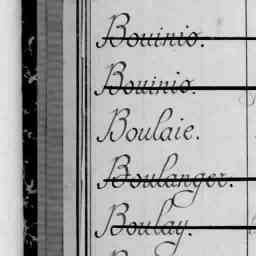 Bouinio.
Bouinio.
Boulaie.
Boulanger.
Boulay.